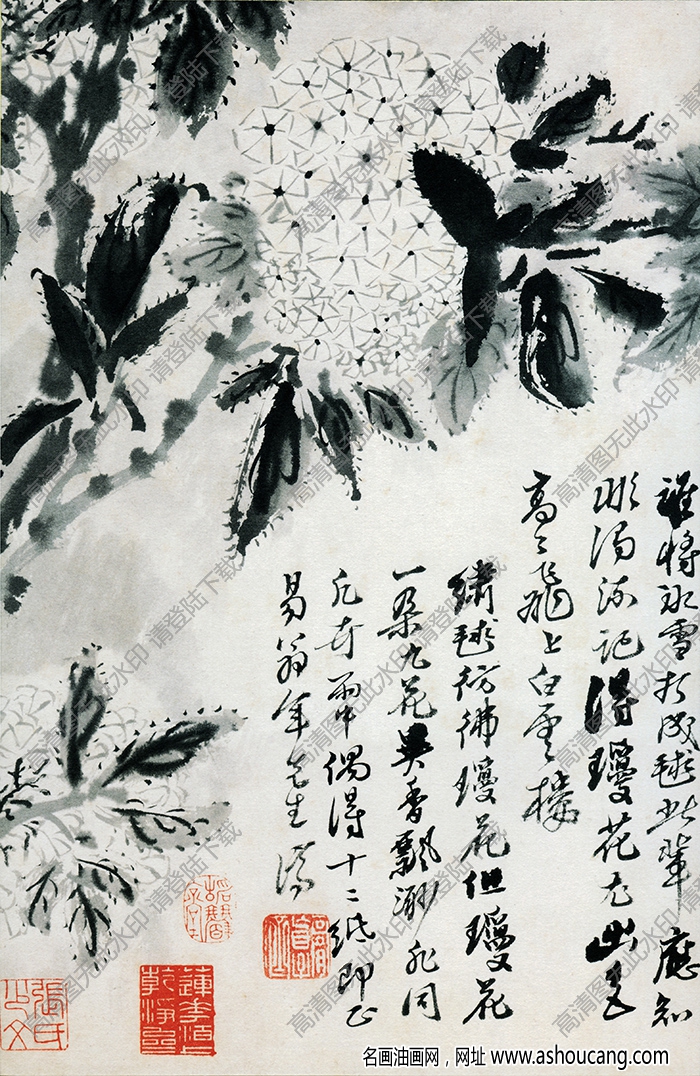 誰将冰雪打成毬此輩應知
濁流記得瓊花尤
高〻飛上白雲樓
繡毬彷彿瓊花但瓊花
一朶九花異香飄渺非同
凡卉雨中偶得十二紙即正
易翁年先生 濟
高清图无此水印 请登陆下载
名画油画网，网址 www.ashoucang.com